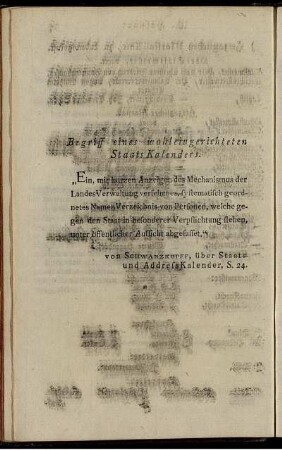 Begriff eines wohleingerichteten
Staats Kalenders.
„Ein, mit kurzen Anzeigen des Mechanismus der
Landes Verwaltung versehenes, systematisch geord-
netes Namen Verzeichnis von Personen, welche ge-
gen den Staat in besonderer Verpflichtung stehen,
unter öffentlicher Aufsicht abgefasset.“
von Schwarzkopf, über Staats-
und Address Kalender, S. 24.